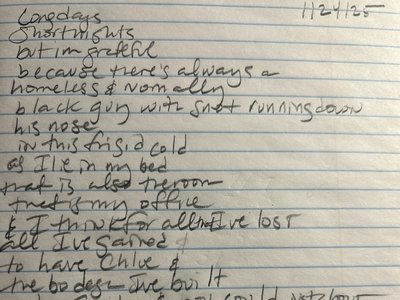 1/24/25
Long days
Short nights
but im grateful
because there's always a
homeless & normally
black guy with snot running down
his nose
in this frigid cold
as I lie in my bed
that is also the room
that is my office
& I think for all that I've lost
all I've gained
to have Chloe &
the bodega I've built